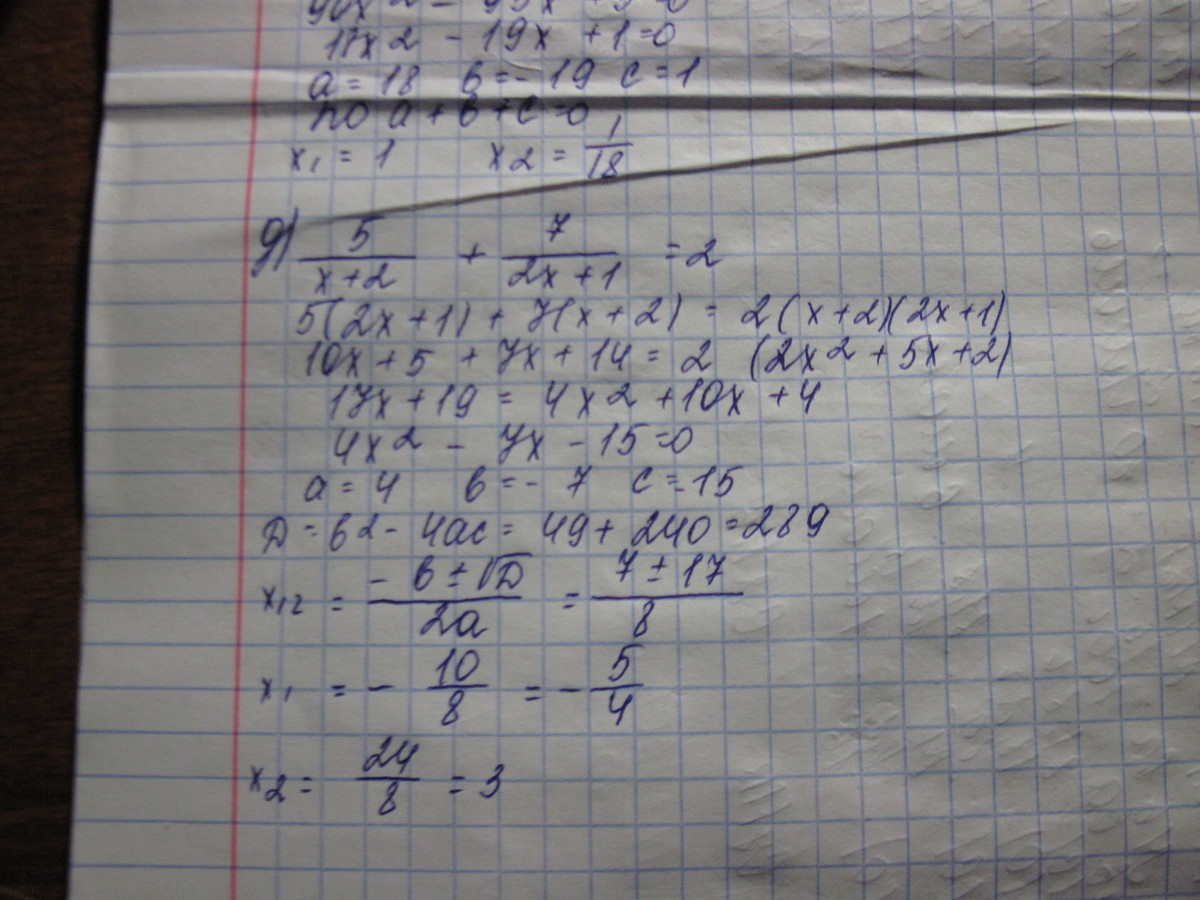 17x2 - 19x + 1 = 0
a = 18 b = - 19 c = 1
по a + b + c = 0
x1 = 1 x2 = 1/18
д) 5/(x+2) + 7/(2x+1) = 2
5(2x+1) + 7(x+2) = 2(x+2)(2x+1)
10x + 5 + 7x + 14 = 2 (2x2 + 5x + 2)
17x + 19 = 4x2 + 10x + 4
4x2 - 7x - 15 = 0
a = 4 b = - 7 c = -15
D = b2 - 4ac = 49 + 240 = 289
x12 = (- b ± √D)/2a = (7 ± 17)/8
x1 = - 10/8 = - 5/4
x2 = 24/8 = 3